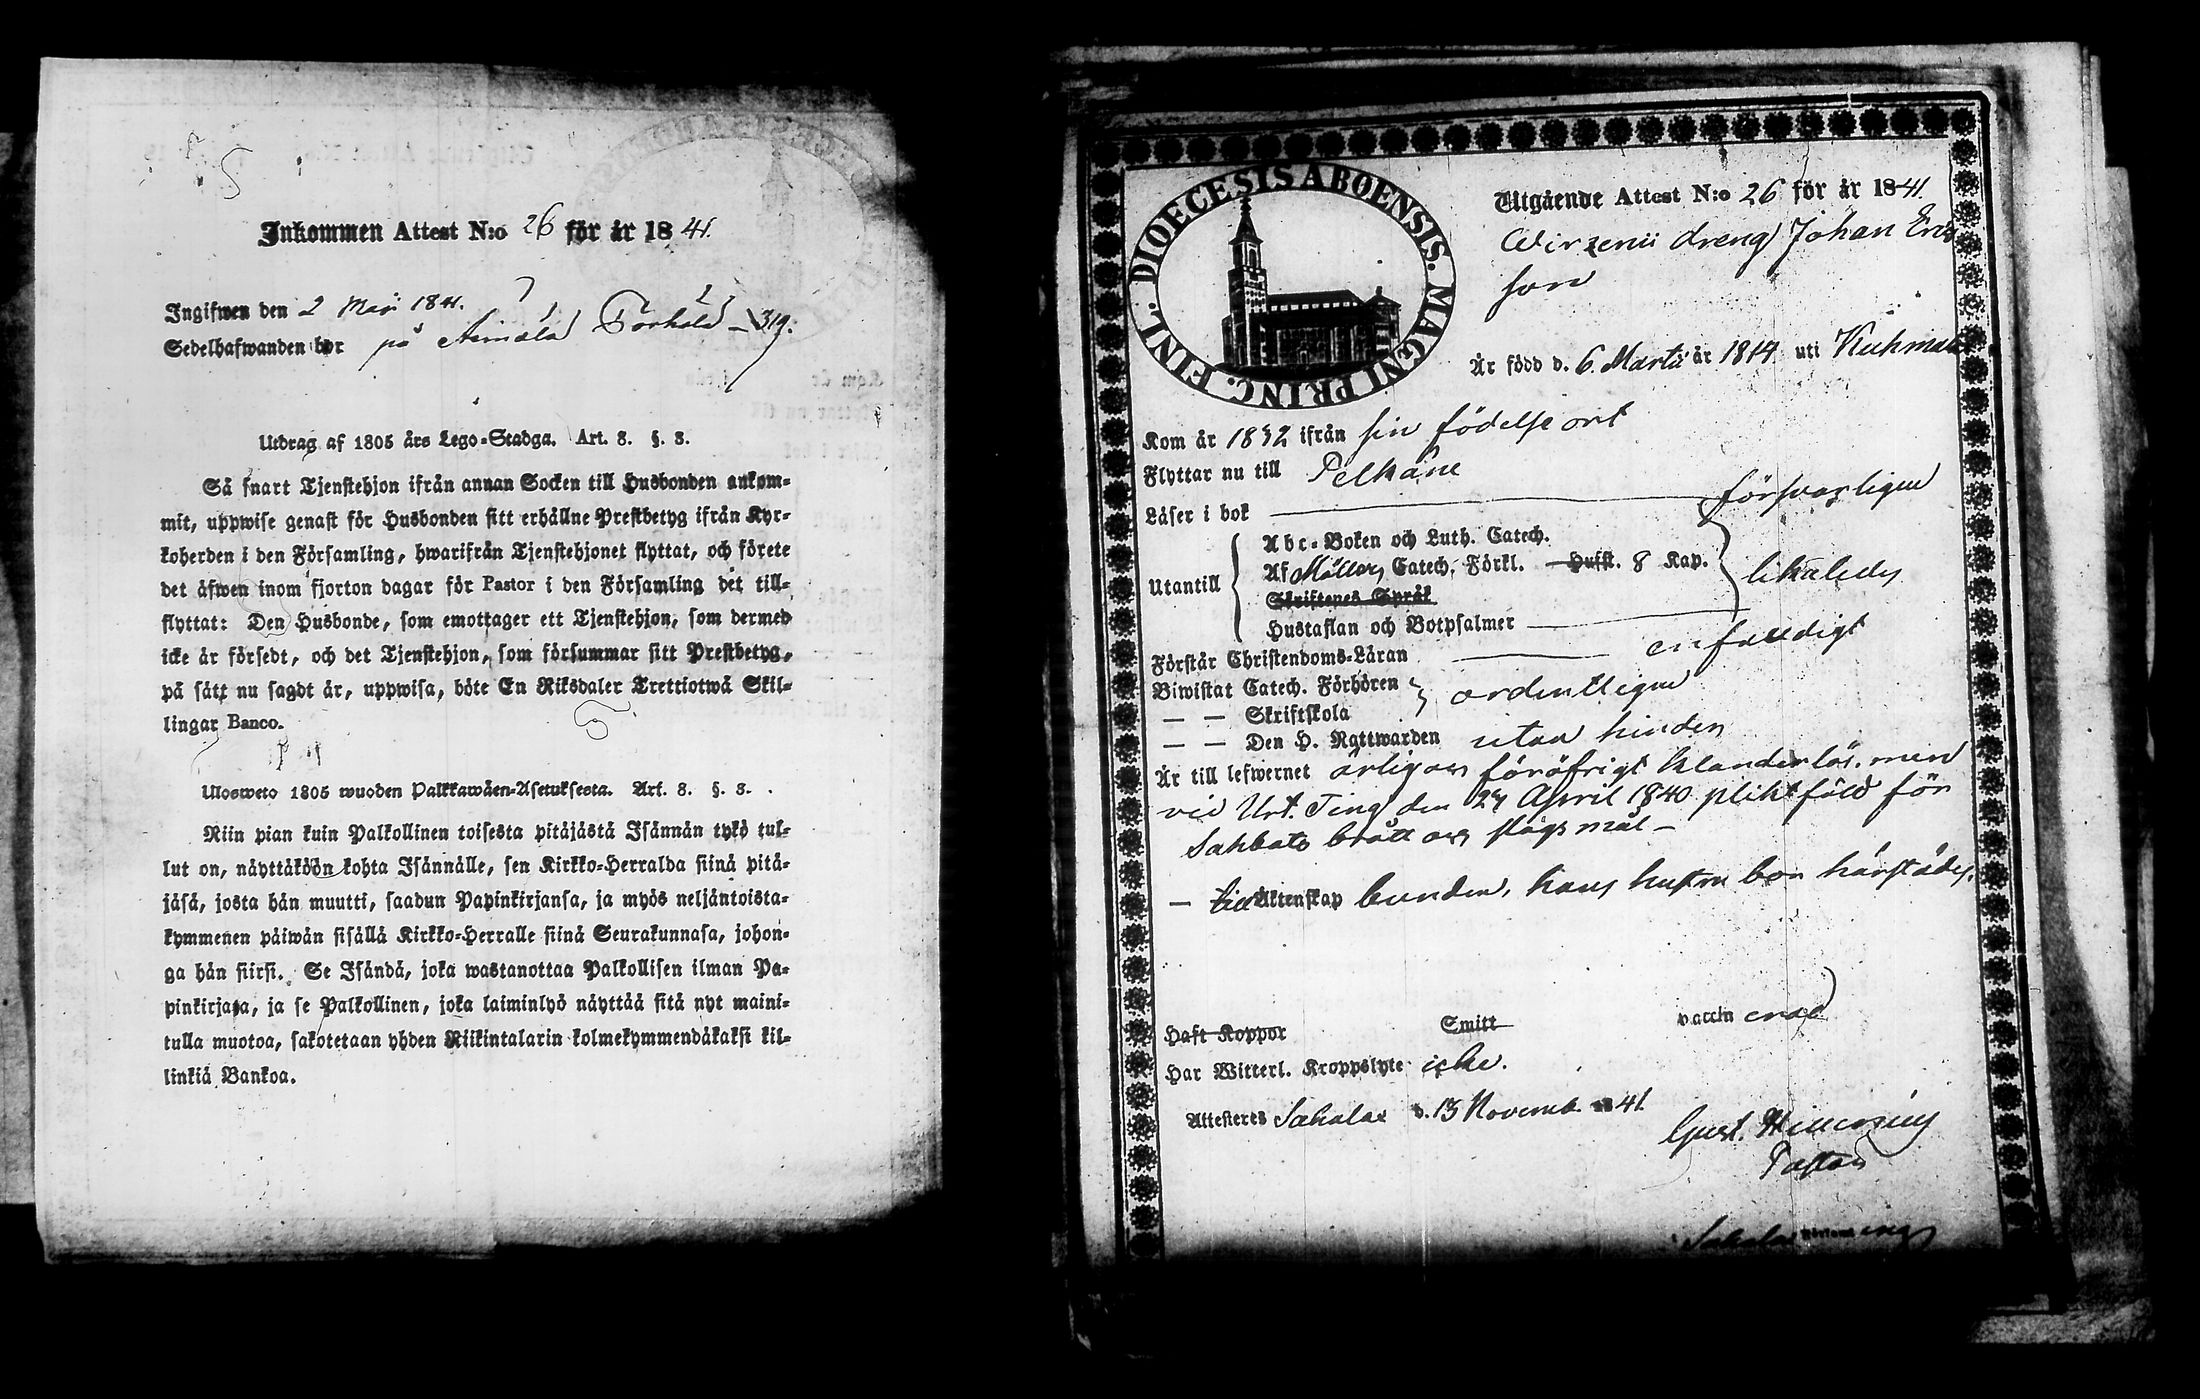 Inkommen Attest N:o 26 för år 1841.
Ingifwen den 2 Maji 1841.
Sedelhafwanden bor på Aimälä Förhåld – 319.
Utdrag af 1805 års Lego-Stadga. Art. 8. §. 8.
Så snart Tjenstehjon ifrån annan Socken till Husbonden ankom-
mit, uppwise genast för Husbonden sitt erhållne Prestbetyg ifrån Kyr-
koherden i den Församling, hwarifrån Tjenstehjonet flyttat, och förete
det äfwen inom fjorton dagar för Pastor i den Församling det till-
flyttat: Den Husbonde, som emottager ett Tjenstehjon, som dermed
icke är försedt, och det Tjenstehjon, som försummar sitt Prestbetyg,
på sätt nu sagdt är, uppwisa, böte En Riksdaler Trettiotwå Skil-
lingar Banco.
Ulosweto 1805 wuoden Palkkawäen-Asetuksesta. Art. 8. §. 8.
Niin pian kuin Palkollinen toisesta pitäjästä Isännän tykö tul-
lut on, näyttäköön kohta Isännälle, sen Kirkko-Herralda siinä pitä-
jäsä, josta hän muutti, saadun Papinkirjansa, ja myös neljäntoista-
kymmenen päiwän sisällä Kirkko-Herralle siinä Seurakunnasa, johon-
ga hän siirsi. Se Isändä, joka wastanottaa Palkollisen ilman Pa-
pinkirjata, ja se Palkollinen, joka laiminlyö näyttää sitä nyt maini-
tulla muotoa, sakotetaan yhden Riikintalarin kolmekymmendäkaksi kil-
linkiä Bankoa.
DIOECESIS ABOENSIS. MAGNI PRINC. FINL.
Utgående Attest N:o 26 för år 1841.
Wirzenii dreng Johan Erics
son
Är född d. 6. Martii år 1814 uti Kuhmalax
Kom år 1832 ifrån sin födelse ort
Flyttar nu till Pelkäne
Läser i bok försvarligen
Utantill
Abc-Boken och Luth. Catech.
Af Möllers Catech. Förkl. Hufst. 8 Kap.
likaledes
Skriftenes Språk
Hustaflan och Botpsalmer
Förstår Christendoms-Läran enfaldigt
Biwistat Catech. Förhören
ordentligen
— — Skriftskola
— — Den H. Nattwarden utan hinder
Är till lefwernet ärlig och föröfrigt klanderlös, men
vid Urt. Ting den 27 April 1840 pliktfäld för
Sabbats brått och slagsmål –
— till Äktenskap bunden, hans hustru bor härstädes.
Haft Koppor Smitt vaccin erad
Har Witterl. Kroppslyte icke.
Attesteres Sahalax d. 13 Novemb. 1841.
Gust.
Pastor
Sahalax